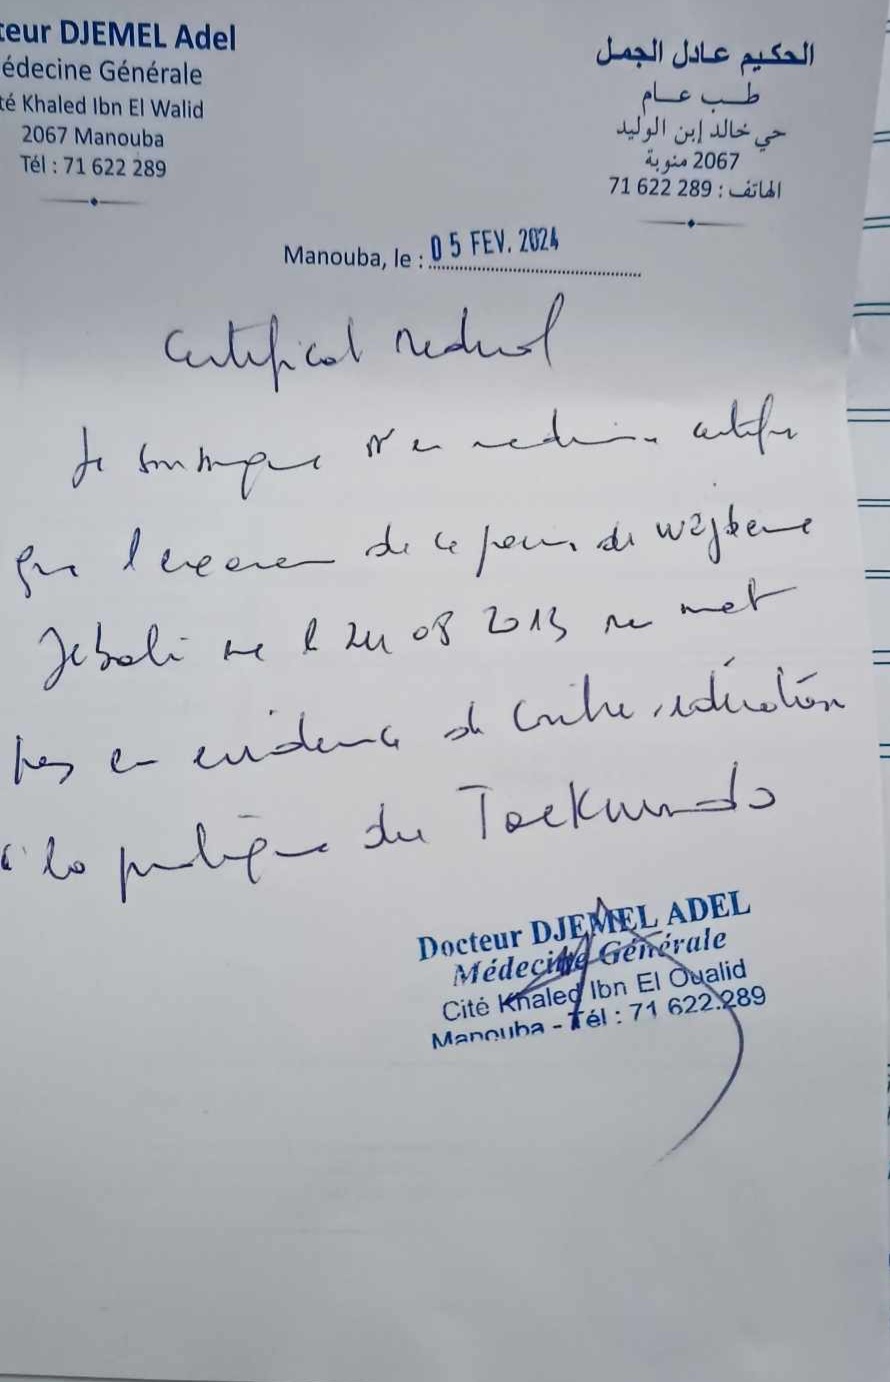 teur DJEMEL Adel
édecine Générale
té Khaled Ibn El Walid
2067 Manouba
Tél : 71 622 289
الحكيم عادل الجمل
طب عام
حي خالد إبن الوليد
2067 منوبة
الهاتف : 289 622 71
Manouba, le : 05 FEV. 2024
Certificat Medical
Je soussigné Dr en medecine certifie
que l'examen de ce jour, de
Jebali né le 24 08 2013 ne met
pas en evidence de contre indication
à la pratique du Taekwondo
Docteur DJEMEL ADEL
Médecine Générale
Cité Khaled Ibn El Oualid
Manouba - Tél : 71 622.289